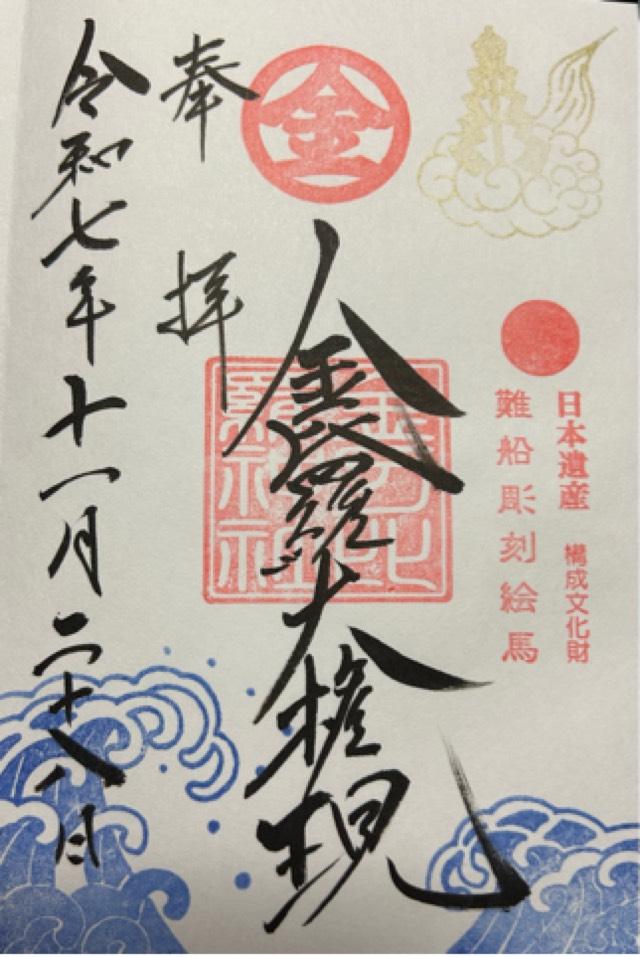 日本遺産 構成文化財
難船彫刻絵馬
金
金毘羅大権現
金刀比羅神社
奉拝
令和七年十一月二十八日